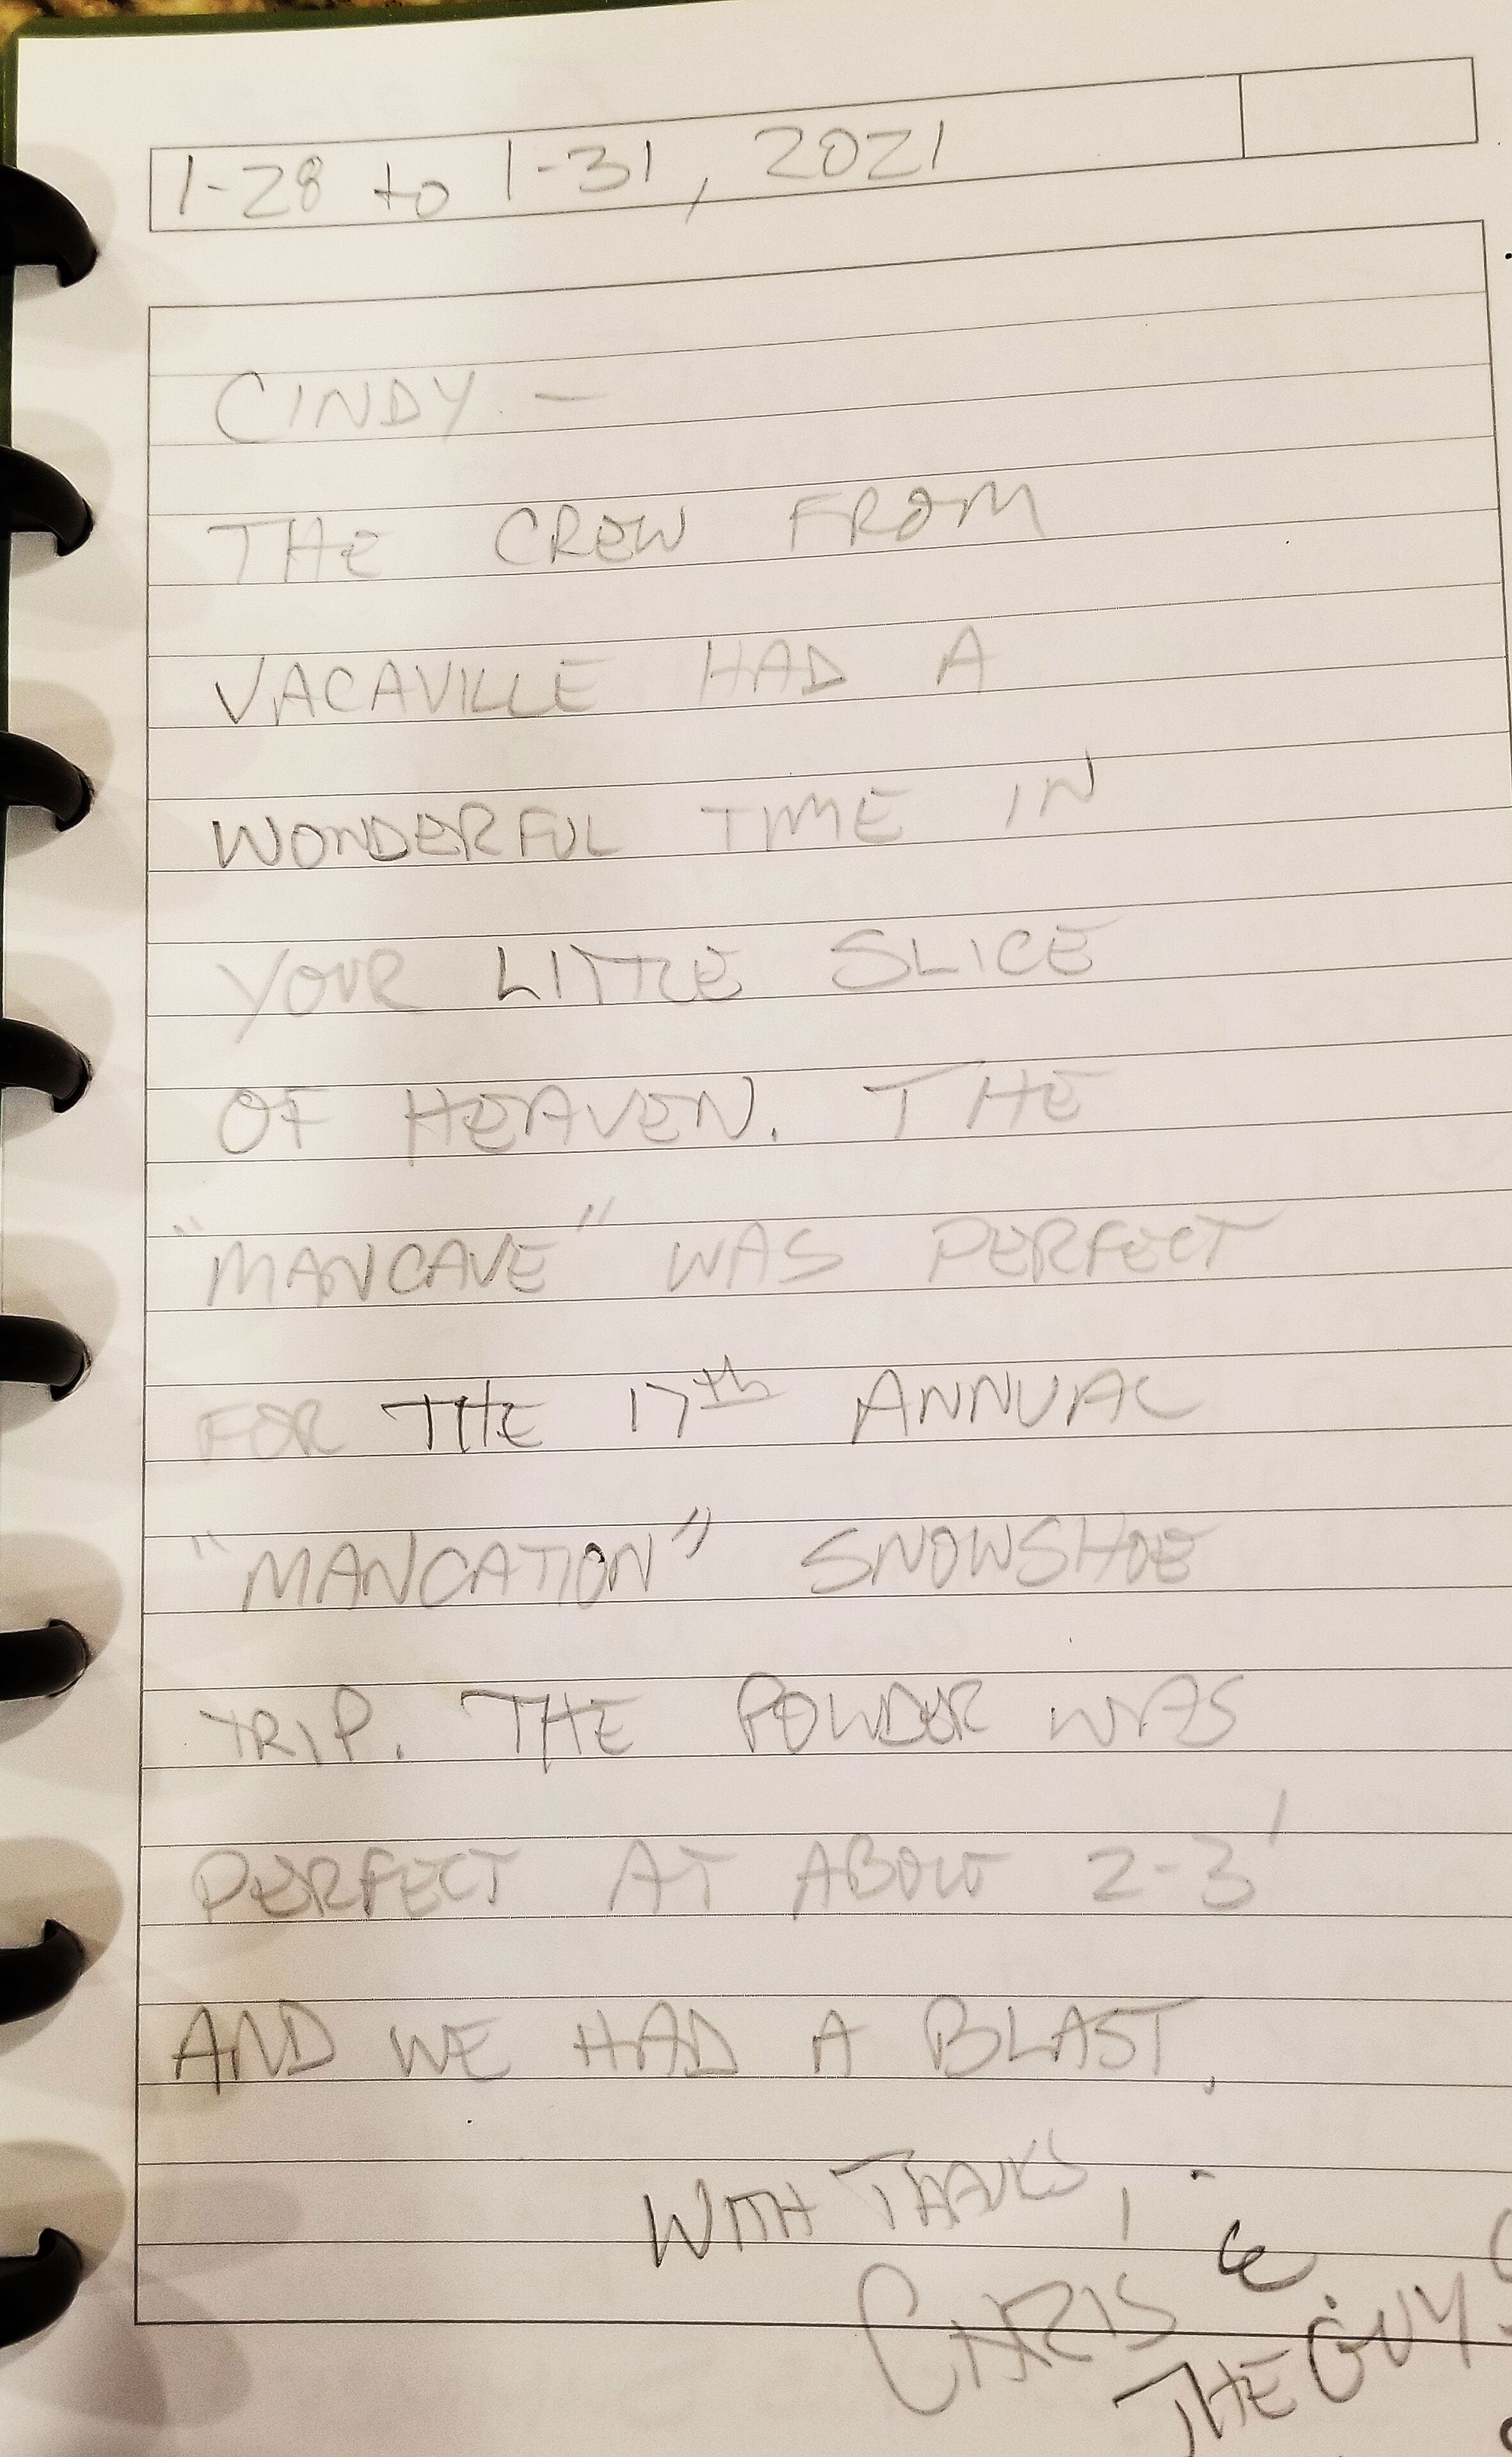 1-28 to 1-31, 2021
CINDY -
THE CREW FROM
VACAVILLE HAD A
WONDERFUL TIME IN
YOUR LITTLE SLICE
OF HEAVEN. THE
"MANCAVE" WAS PERFECT
FOR THE 17th ANNUAL
"MANCATION" SNOWSHOE
TRIP. THE POWDER WAS
PERFECT AT ABOUT 2-3'
AND WE HAD A BLAST.
WITH THANKS,
CHRIS &
THE GUYS